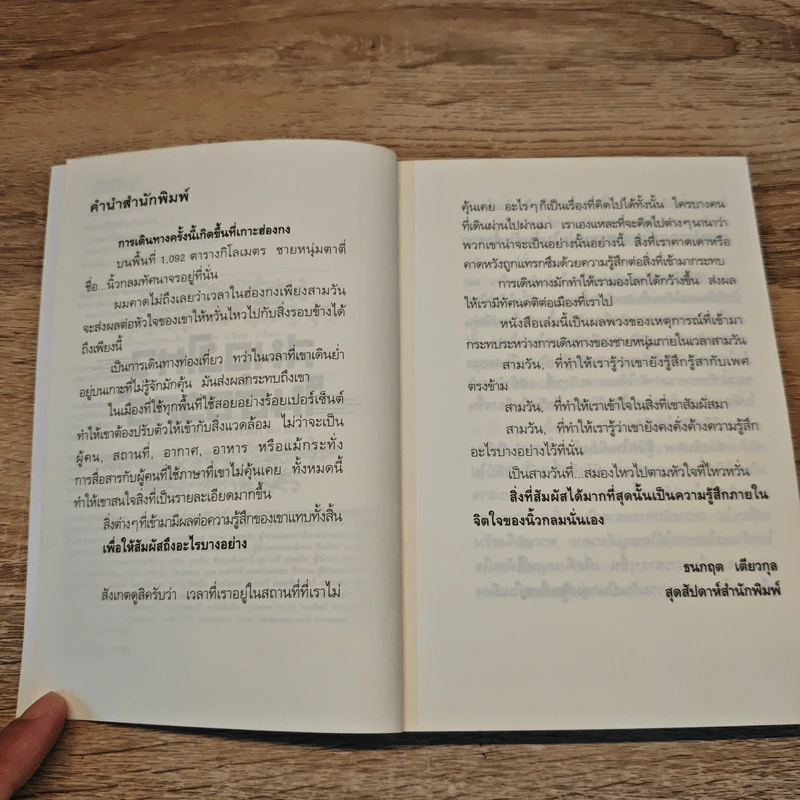 คำนำสำนักพิมพ์
การเดินทางครั้งนี้เกิดขึ้นที่เกาะฮ่องกง
บนพื้นที่ 1,092 ตารางกิโลเมตร ชายหนุ่มตาตี่
ชื่อ...นิ้วกลมทัศนาจรอยู่ที่นั่น
ผมคาดไม่ถึงเลยว่าเวลาในฮ่องกงเพียงสามวัน
จะส่งผลต่อหัวใจของเขาให้หวั่นไหวไปกับสิ่งรอบข้างได้
ถึงเพียงนี้
เป็นการเดินทางท่องเที่ยว ทว่าในเวลาที่เขาเดินย่ำ
อยู่บนเกาะที่ไม่รู้จักมักคุ้น มันส่งผลกระทบถึงเขา
ในเมืองที่ใช้ทุกพื้นที่ใช้สอยอย่างร้อยเปอร์เซ็นต์
ทำให้เขาต้องปรับตัวให้เข้ากับสิ่งแวดล้อม ไม่ว่าจะเป็น
ผู้คน, สถานที่, อากาศ, อาหาร หรือแม้กระทั่ง
การสื่อสารกับผู้คนที่ใช้ภาษาที่เขาไม่คุ้นเคย ทั้งหมดนี้
ทำให้เขาสนใจสิ่งที่เป็นรายละเอียดมากขึ้น
สิ่งต่างๆที่เข้ามามีผลต่อความรู้สึกของเขาแทบทั้งสิ้น
เพื่อให้สัมผัสถึงอะไรบางอย่าง
สังเกตดูสิครับว่า เวลาที่เราอยู่ในสถานที่ที่เราไม่
คุ้นเคย อะไรๆก็เป็นเรื่องที่คิดไปได้ทั้งนั้น ใครบางคน
ที่เดินผ่านไปผ่านมา เราเองแหละที่จะคิดไปต่างๆนานาว่า
พวกเขาน่าจะเป็นอย่างนั้นอย่างนี้ สิ่งที่เราคาดเดาหรือ
คาดหวังถูกแทรกซึมด้วยความรู้สึกต่อสิ่งที่เข้ามากระทบ
การเดินทางมักทำให้เรามองโลกได้กว้างขึ้น ส่งผล
ให้เรามีทัศนคติต่อเมืองที่เราไป
หนังสือเล่มนี้เป็นผลพวงของเหตุการณ์ที่เข้ามา
กระทบระหว่างการเดินทางของชายหนุ่มภายในเวลาสามวัน
สามวัน, ที่ทำให้เรารู้ว่าเขายังรู้สึกรู้สากับเพศ
ตรงข้าม
สามวัน, ที่ทำให้เราเข้าใจในสิ่งที่เขาสัมผัสมา
สามวัน, ที่ทำให้เรารู้ว่าเขายังคงคั่งค้างความรู้สึก
อะไรบางอย่างไว้ที่นั่น
เป็นสามวันที่...สมองไหวไปตามหัวใจที่ไหวหวัน
สิ่งที่สัมผัสได้มากที่สุดนั้นเป็นความรู้สึกภายใน
จิตใจของนิ้วกลมนั่นเอง
ธนกฤต เตียวกุล
สุดสัปดาห์สำนักพิมพ์